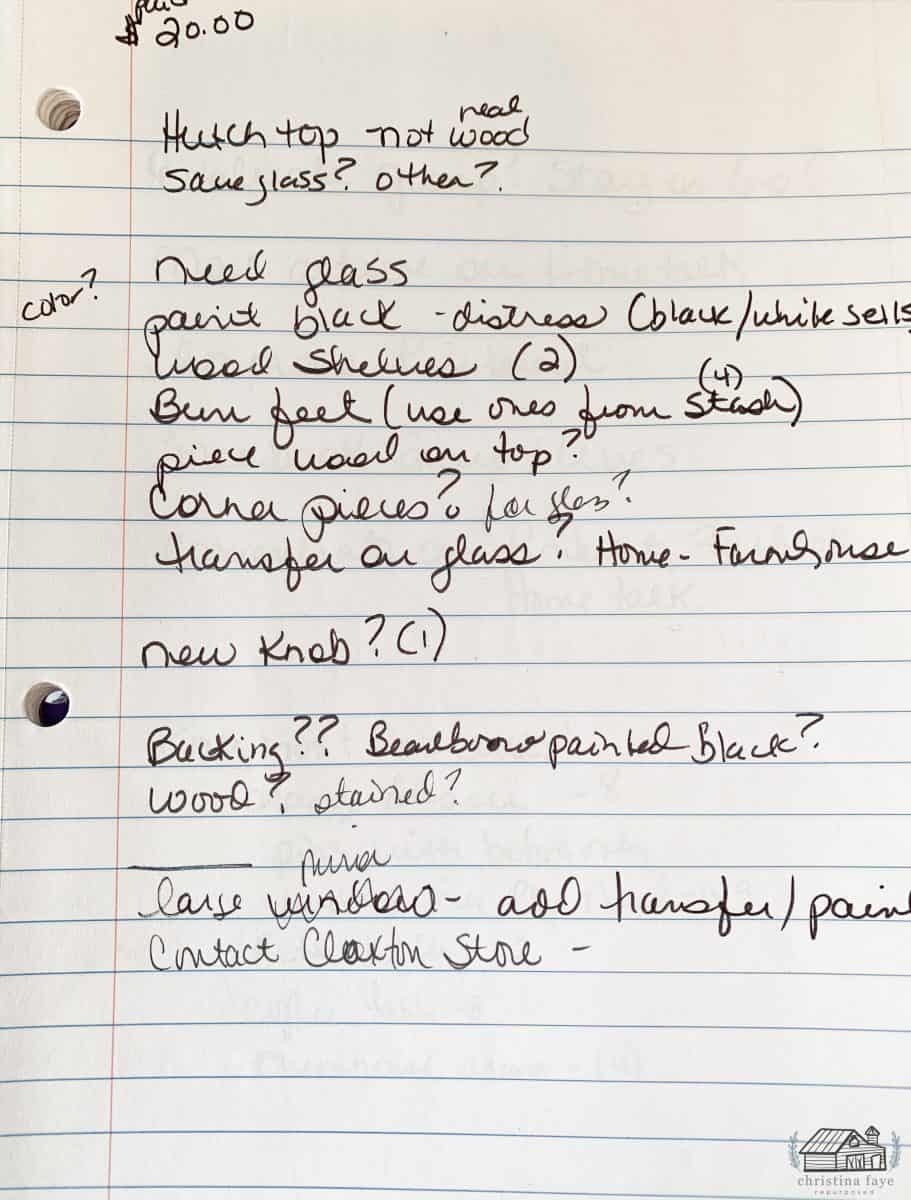 $20.00
real
Hutch top not wood
Save glass? other?.
need glass
color?
paint black - distress (black/white sells
wood shelves (2)
(4)
Bun feet (use ones from stash)
piece wood on top?
Corner pieces? for glass?
transfer on glass? Home - Farmhouse
new Knob? (1)
Backing?? Beadboard painted Black?
wood? stained?
mirror
large window - add transfer/pain
Contact Claxton Store -
christina faye
repurposed